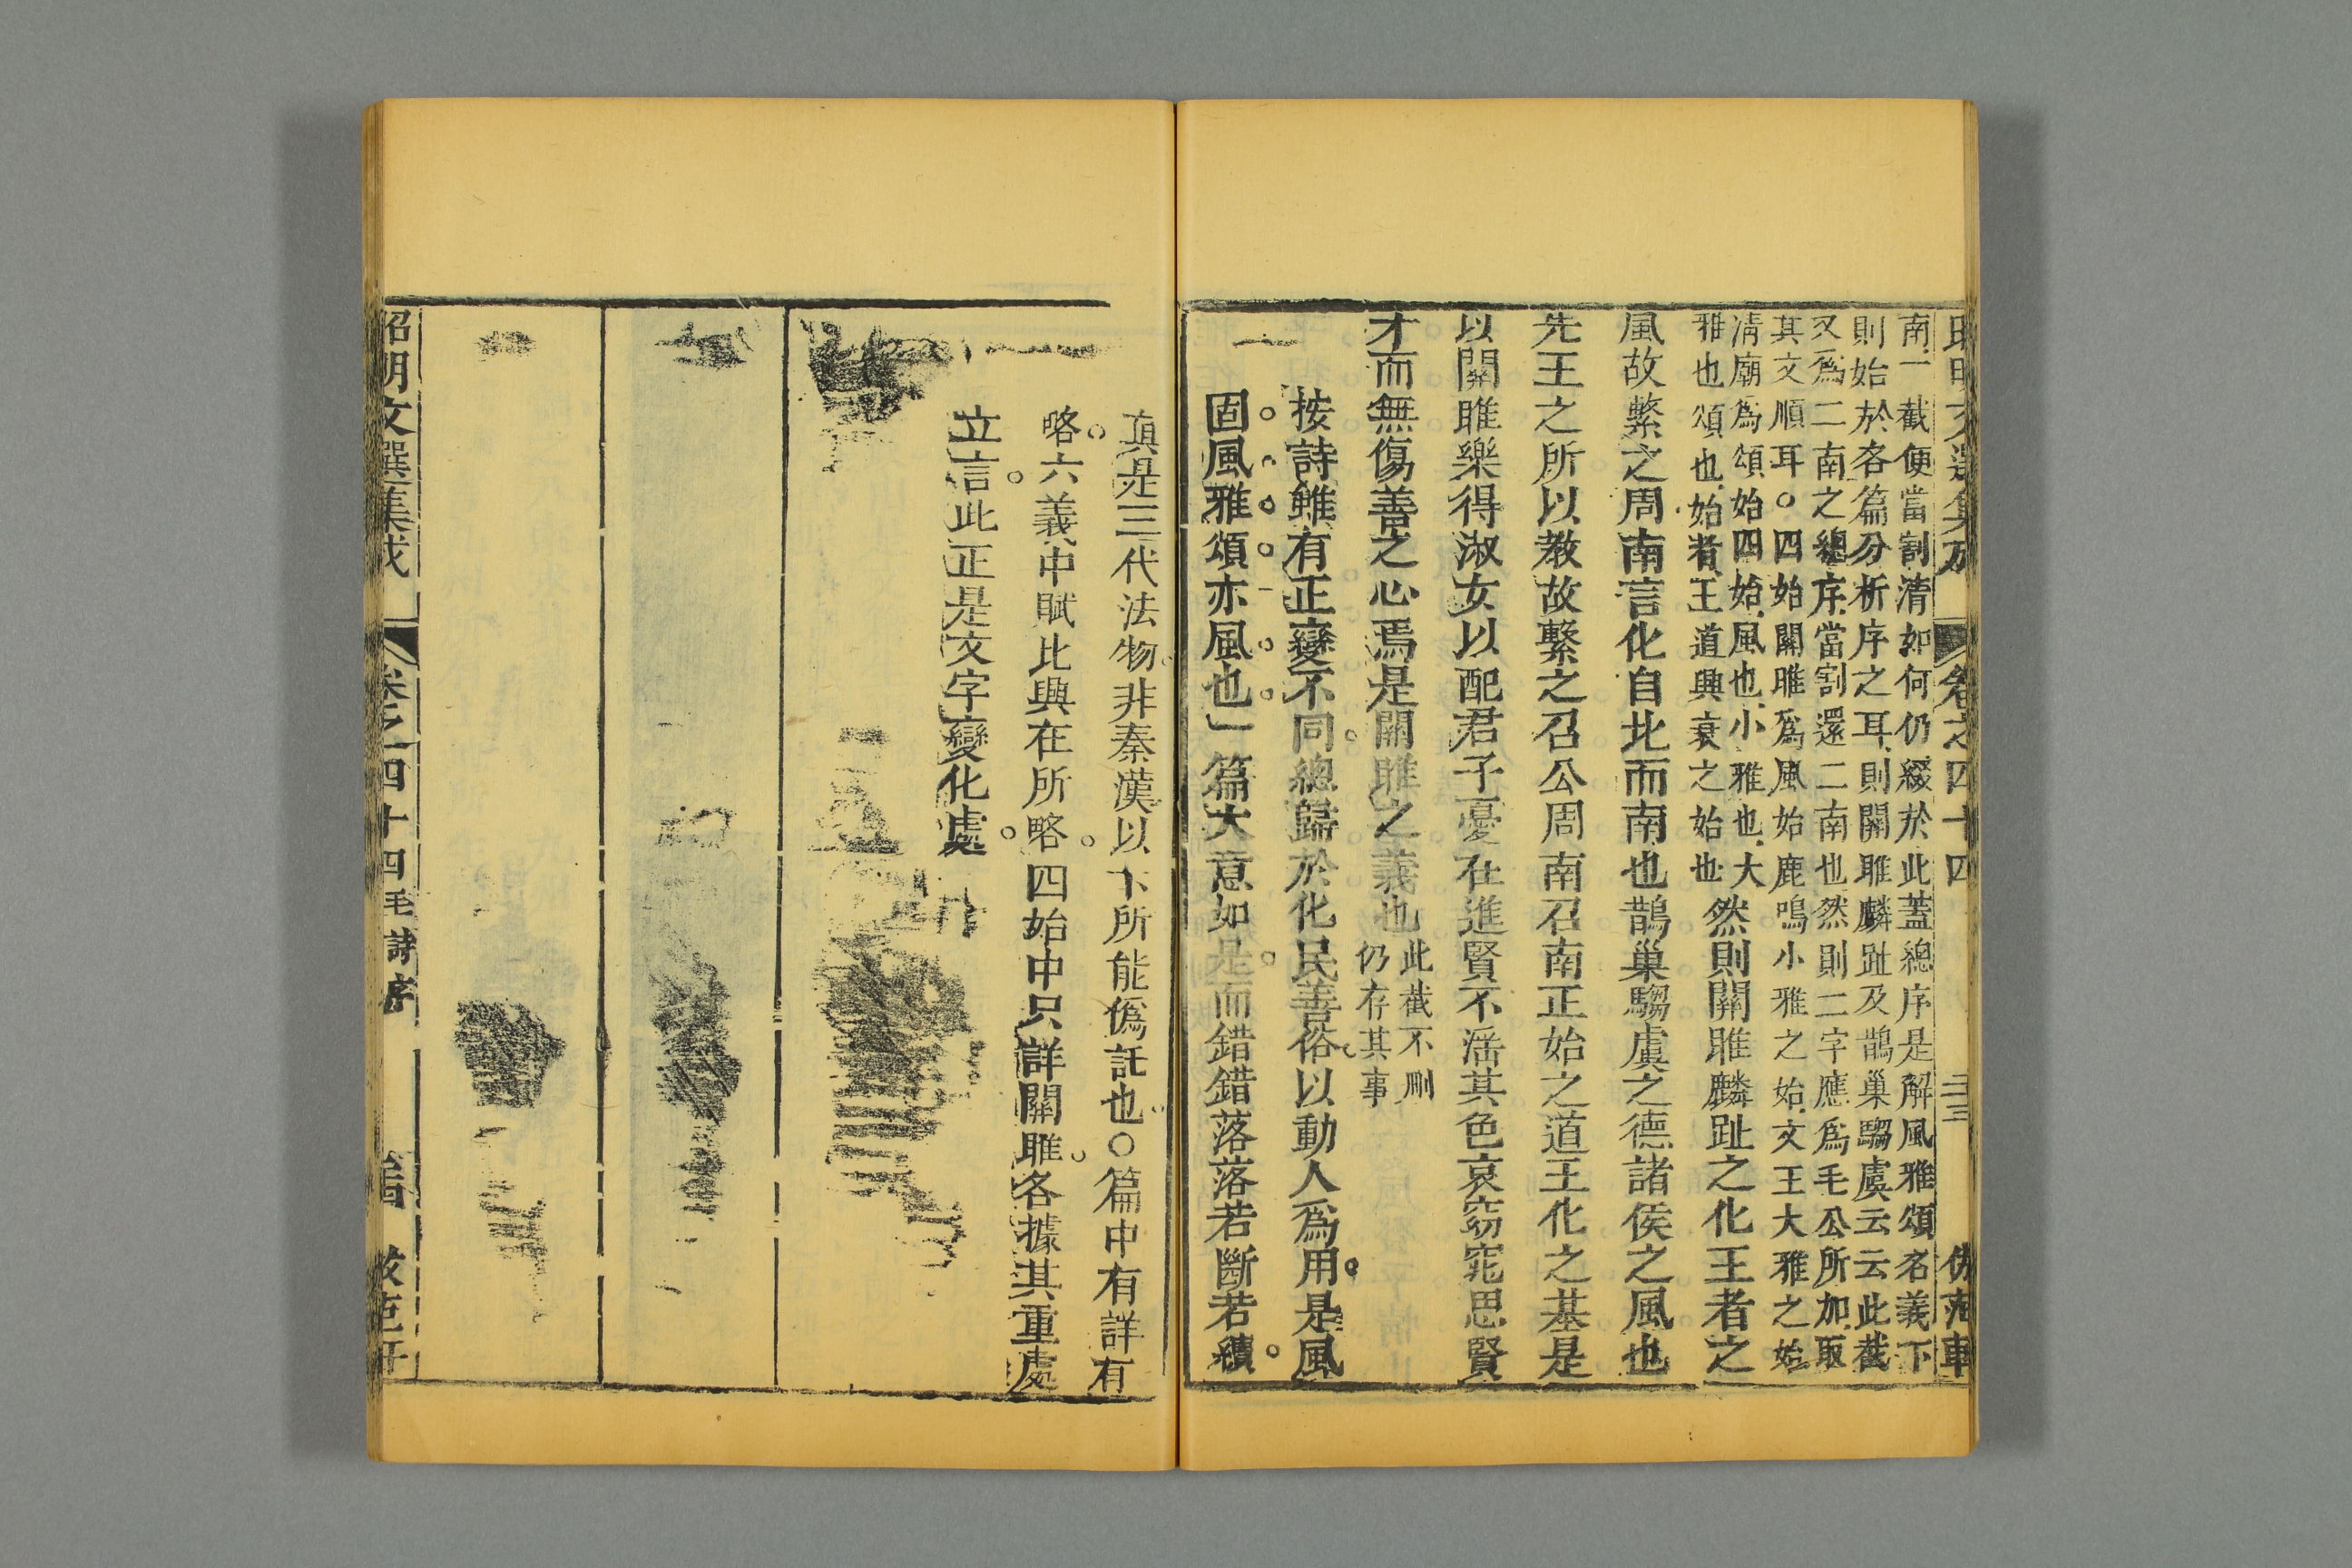 昭明文選集成 卷之四十四 三 仿范軒
南一截便當割清如何仍綴於此蓋總序是解風雅頌名義下
則始於各篇分析序之耳則關雎麟趾及鵲巢騶虞云云此截
又爲二南之總序當割還二南也然則二字應爲毛公所加取
其文順耳○四始關雎爲風始鹿鳴小雅之始文王大雅之始
清廟爲頌始四始風也小雅也大
雅也頌也始者王道興衰之始也
然則關雎麟趾之化王者之
風故繫之周南言化自北而南也鵲巢騶虞之德諸侯之風也
先王之所以教故繫之召公周南召南正始之道王化之基是
以關雎樂得淑女以配君子憂在進賢不滛其色哀窈窕思賢
才而無傷善之心焉是關雎之義也
此截不刪
仍存其事
按詩雖有正變不同總歸於化民善俗以動人爲用是風
固風雅頌亦風也一篇大意如是而錯錯落落若斷若續
真是三代法物非秦漢以下所能僞託也○篇中有詳有
略六義中賦比興在所略四始中只詳關雎各據其重處
立言此正是文字變化處
昭明文選集成 卷之四十四 毛詩序